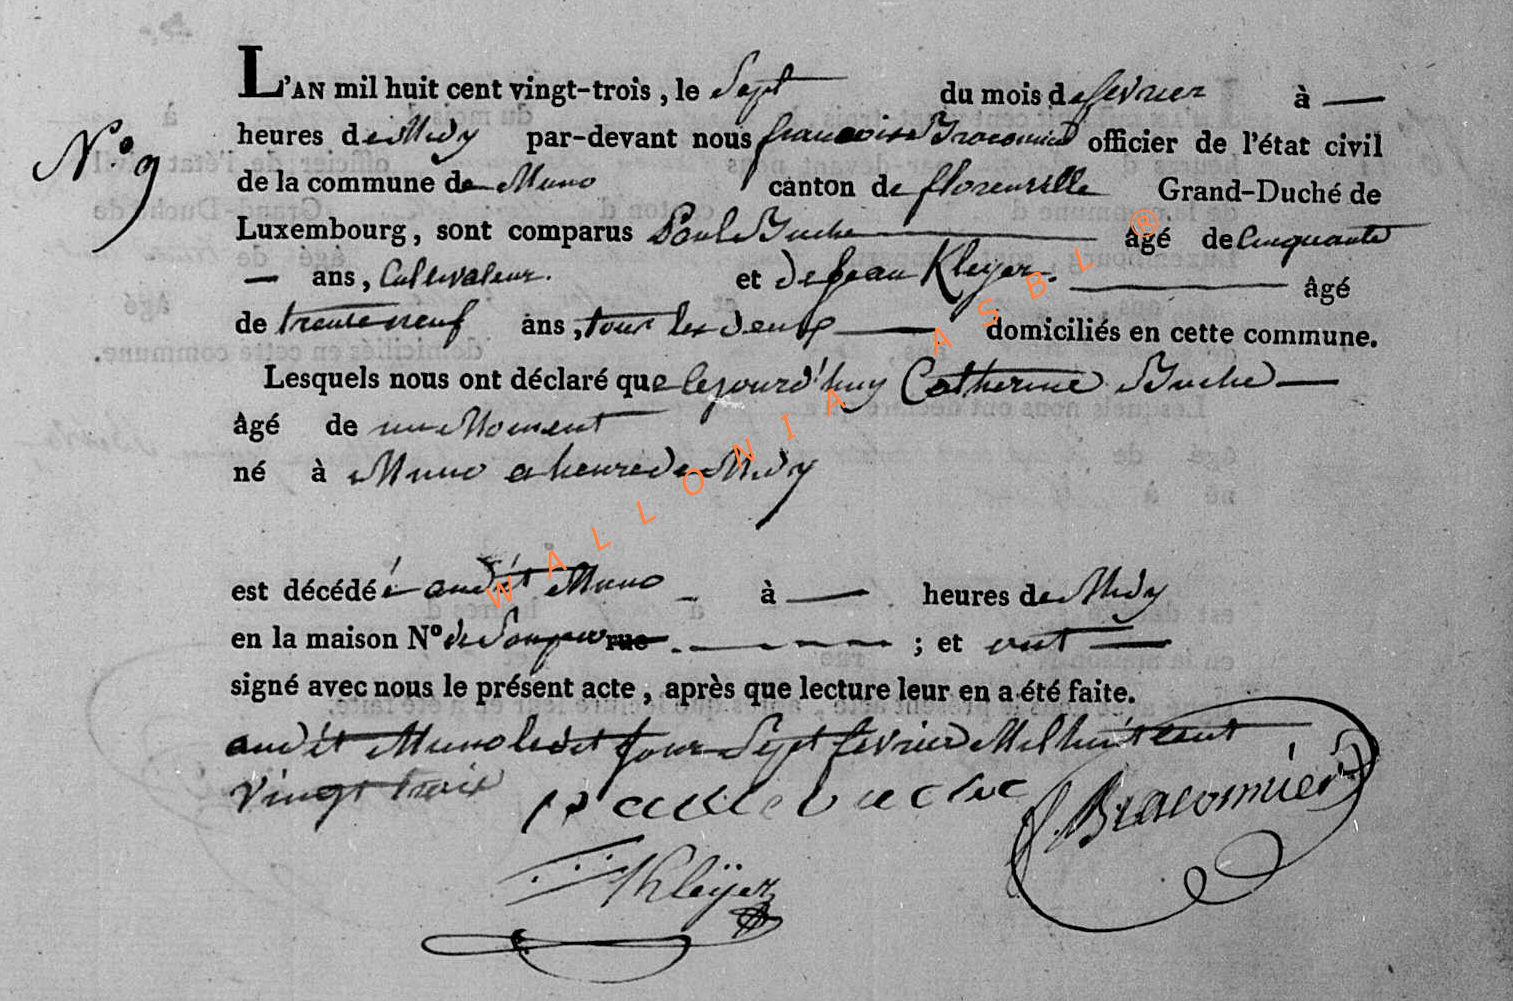 L'AN mil huit cent vingt-trois, le Sept du mois de fevrier à —
N° 9
heures de Midy par-devant nous francoise Braconnier officier de l'état civil
de la commune de Muno canton de florenville Grand-Duché de
Luxembourg, sont comparus Paul Buche âgé de Cinquante
— ans, Cultivateur. et de Jean Kleÿer. âgé
de trente neuf ans, tous les deux domiciliés en cette commune.
Lesquels nous ont déclaré que lejourd'huy Catherine Buche —
âgé de un Moment
né à Muno a heure de Midy
est décédé é audit Muno à — heures de Midy
en la maison N° de rue ; et ont —
signé avec nous le présent acte, après que lecture leur en a été faite.
audit Muno ledit Jour Sept fevrier Mil huit cent
vingt trois
paule buche
f. Braconnier
Kleÿer
WALLONIA ASBL @